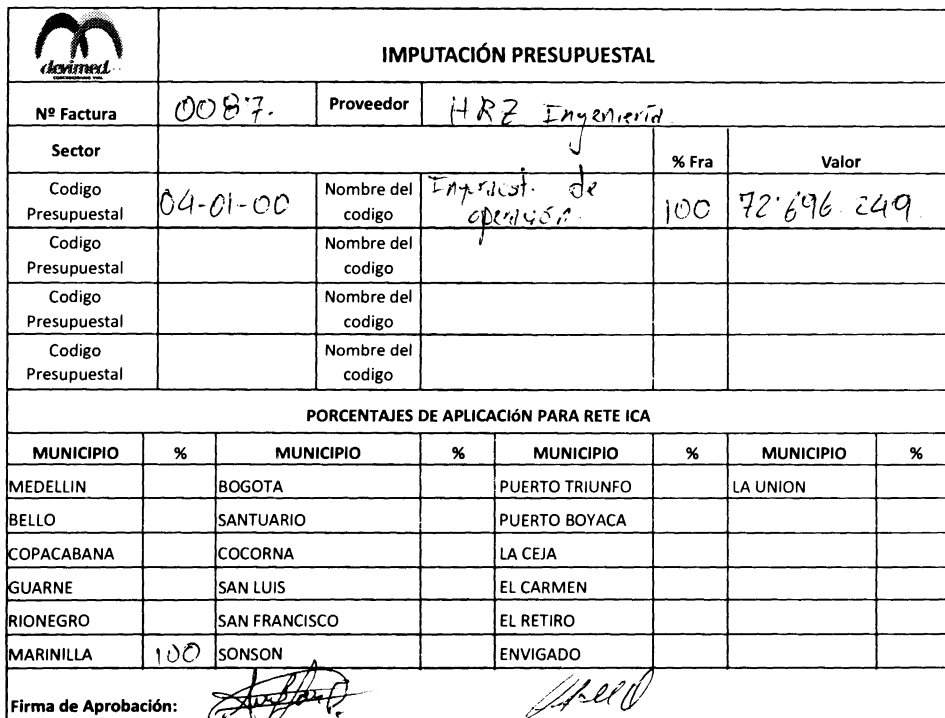 devimed
IMPUTACIÓN PRESUPUESTAL
Nº Factura 0087. Proveedor HRZ Ingeniería
Sector % Fra Valor
Codigo Presupuestal 04-01-00 Nombre del codigo de operación. 100 72'696.249
Codigo Presupuestal Nombre del codigo
Codigo Presupuestal Nombre del codigo
Codigo Presupuestal Nombre del codigo
PORCENTAJES DE APLICACIóN PARA RETE ICA
MUNICIPIO % MUNICIPIO % MUNICIPIO % MUNICIPIO %
MEDELLIN BOGOTA PUERTO TRIUNFO LA UNION
BELLO SANTUARIO PUERTO BOYACA
COPACABANA COCORNA LA CEJA
GUARNE SAN LUIS EL CARMEN
RIONEGRO SAN FRANCISCO EL RETIRO
MARINILLA 100 SONSON ENVIGADO
Firma de Aprobación: